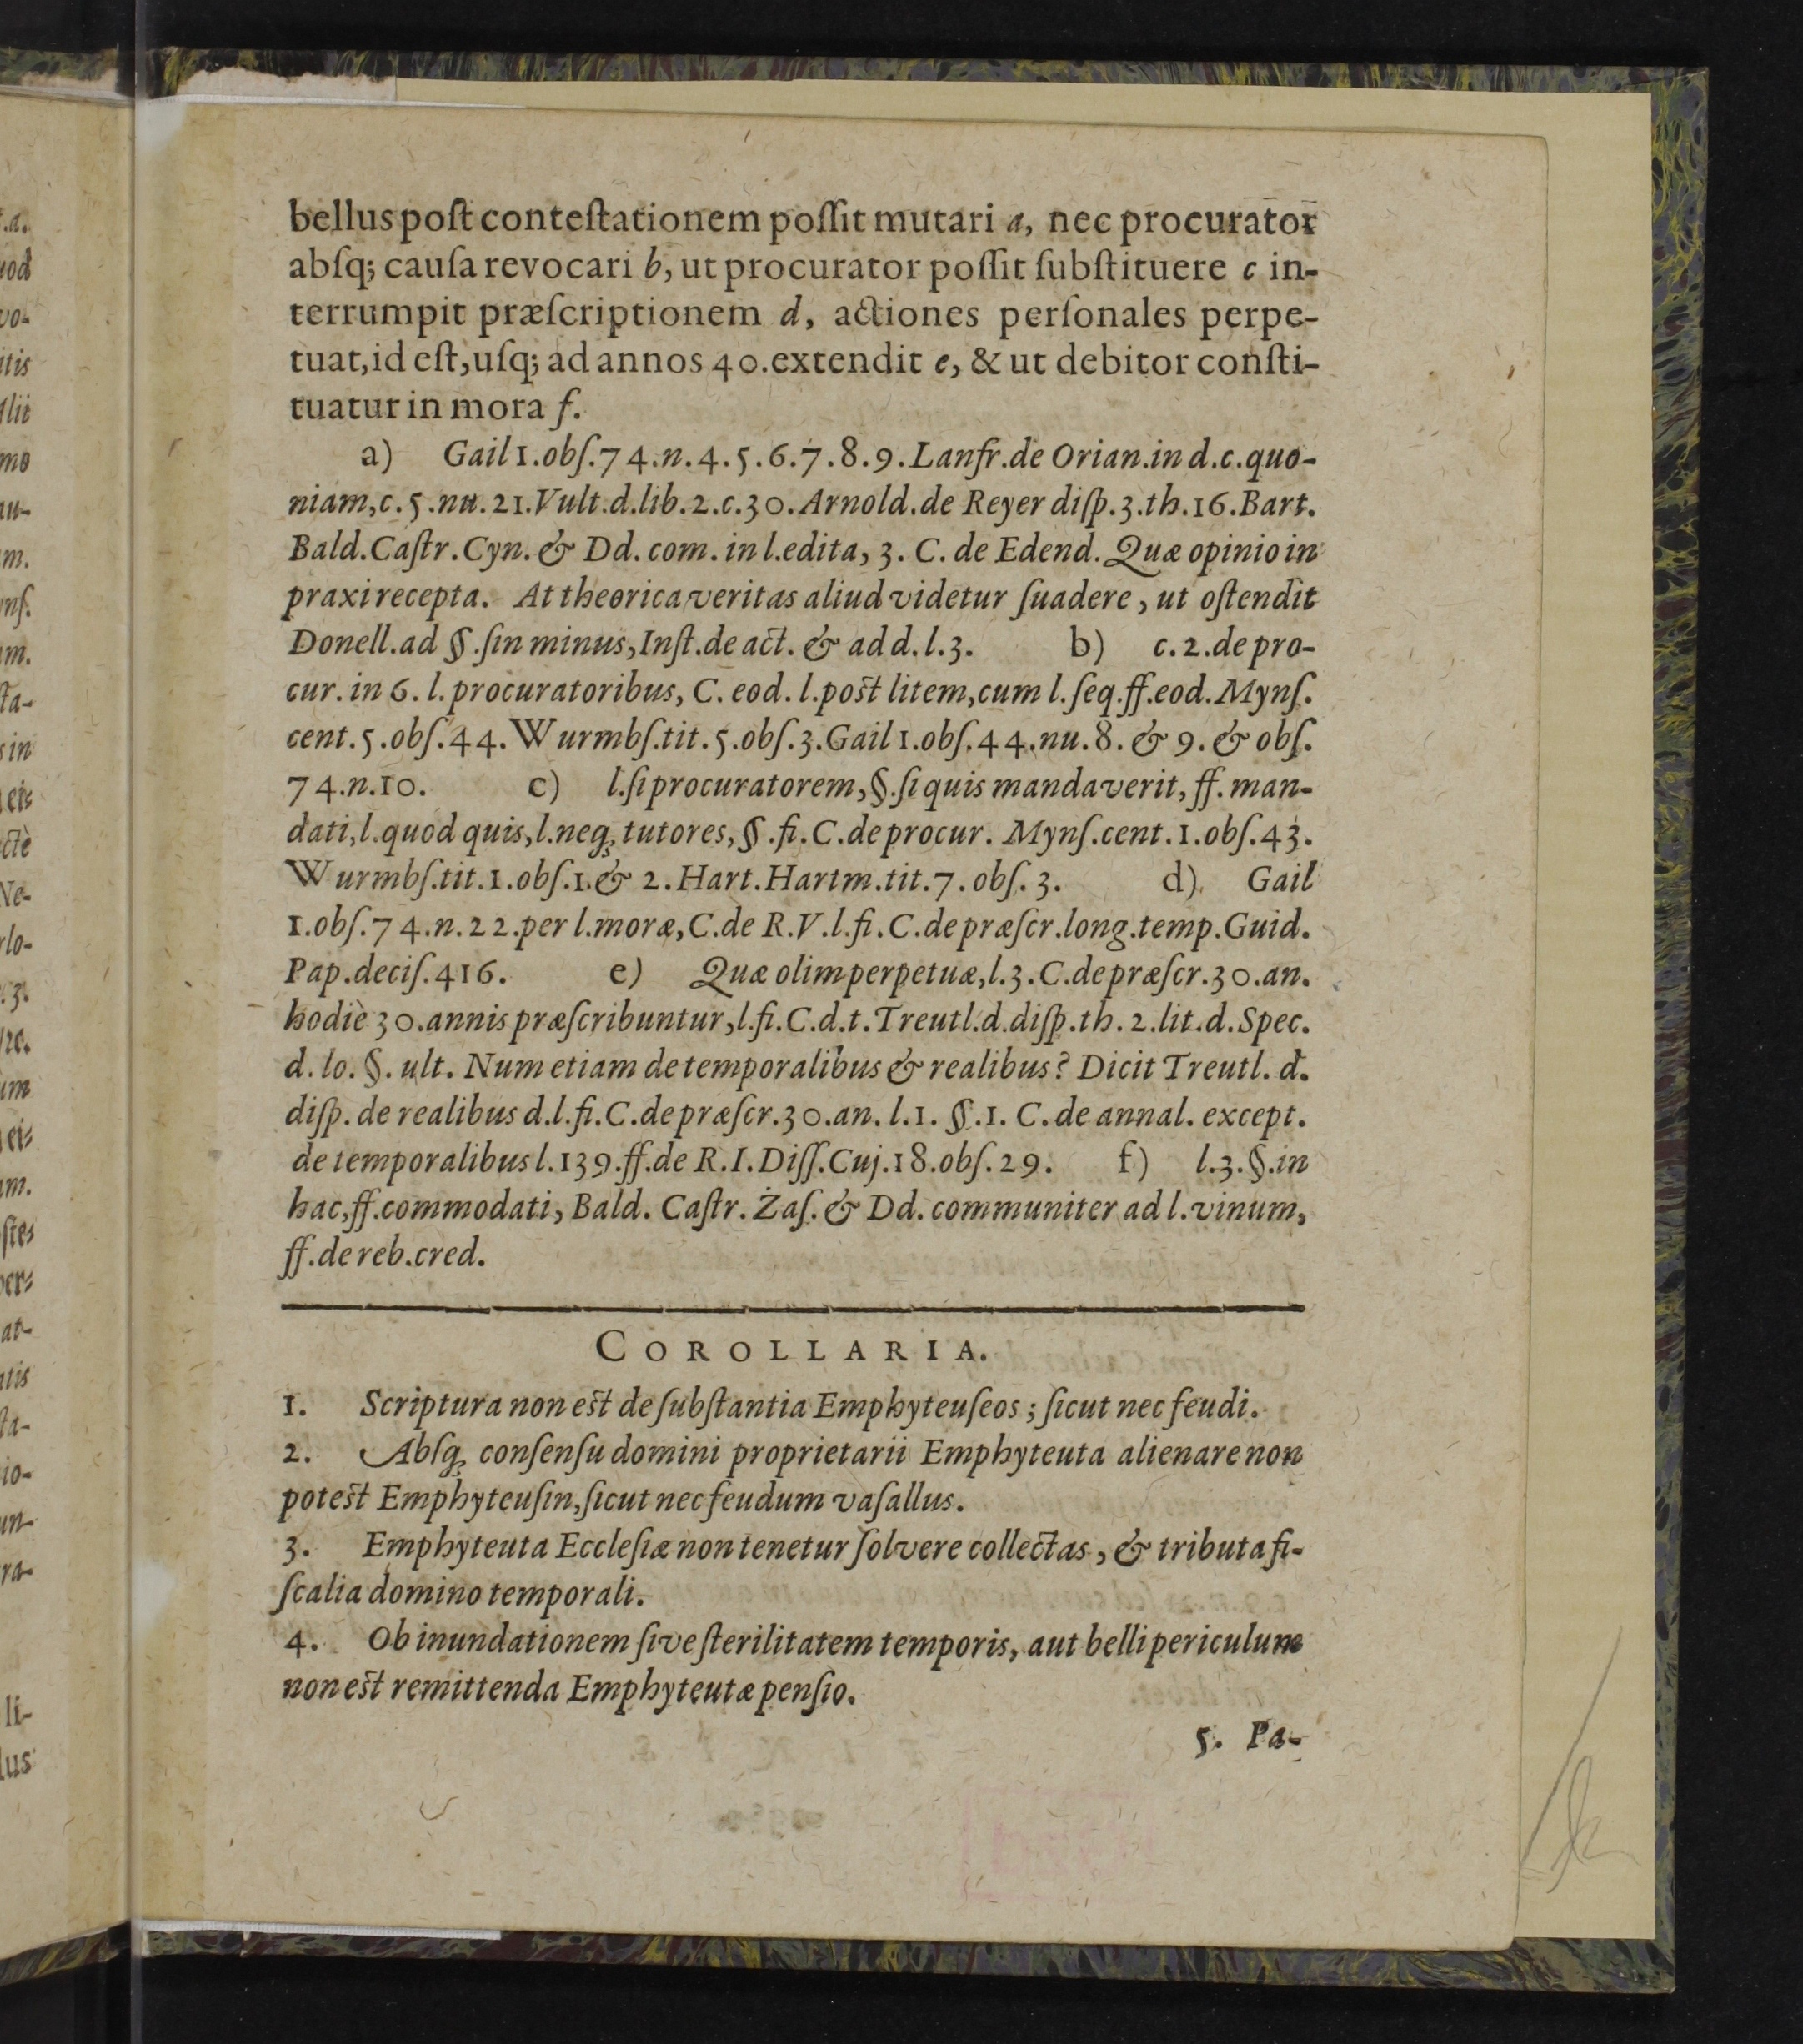 bellus poſt conteſtationem poſſit mutari a, nec procurator
abſq; cauſa revocari b, ut procurator poſſit ſubſtituere c in-
terrumpit præſcriptionem d, actiones perſonales perpe-
tuat, id eſt, uſq; ad annos 40. extendit e, & ut debitor conſti-
tuatur in mora f.
a) Gail 1. obſ. 74. n. 4. 5. 6. 7. 8. 9. Lanfr. de Orian. in d. c. quo-
niam, c. 5. nu. 21. Vult. d. lib. 2. c. 30. Arnold. de Reyer diſp. 3. th. 16. Bart.
Bald. Caſtr. Cyn. & Dd. com. in l. edita, 3. C. de Edend. Quæ opinio in
praxi recepta. At theorica veritas aliud videtur ſuadere, ut oſtendit
Donell. ad §. ſin minus, Inſt. de act. & ad d. l. 3. b) c. 2. de pro-
cur. in 6. l. procuratoribus, C. eod. l. poſt litem, cum l. ſeq. ff. eod. Mynſ.
cent. 5. obſ. 44. Wurmbſ. tit. 5. obſ. 3. Gail 1. obſ. 44. nu. 8. & 9. & obſ.
74. n. 10. c) l. ſi procuratorem, §. ſi quis mandaverit, ff. man-
dati, l. quod quis, l. neq; tutores, §. fi. C. de procur. Mynſ. cent. 1. obſ. 43.
Wurmbſ. tit. 1. obſ. 1. & 2. Hart. Hartm. tit. 7. obſ. 3. d) Gail
1. obſ. 74. n. 22. per l. moræ, C. de R. V. l. fi. C. de præſcr. long. temp. Guid.
Pap. deciſ. 416. e) Quæ olim perpetuæ, l. 3. C. de præſcr. 30. an.
hodiè 30. annis præſcribuntur, l. fi. C. d. t. Treutl. d. diſp. th. 2. lit. d. Spec.
d. lo. §. ult. Num etiam de temporalibus & realibus? Dicit Treutl. d.
diſp. de realibus d. l. fi. C. de præſcr. 30. an. l. 1. §. 1. C. de annal. except.
de temporalibus l. 139. ff. de R. I. Diſſ. Cuj. 18. obſ. 29. f) l. 3. §. in
hac, ff. commodati, Bald. Caſtr. Zaſ. & Dd. communiter ad l. vinum,
ff. de reb. cred.
COROLLARIA.
1. Scriptura non eſt de ſubſtantia Emphyteuſeos; ſicut nec feudi.
2. Abſq; conſenſu domini proprietarii Emphyteuta alienare non
poteſt Emphyteuſin, ſicut nec feudum vaſallus.
3. Emphyteuta Eccleſiæ non tenetur ſolvere collectas, & tributa fi-
ſcalia domino temporali.
4. Ob inundationem ſive ſterilitatem temporis, aut belli periculum
non eſt remittenda Emphyteutæ penſio.
5. Pa-